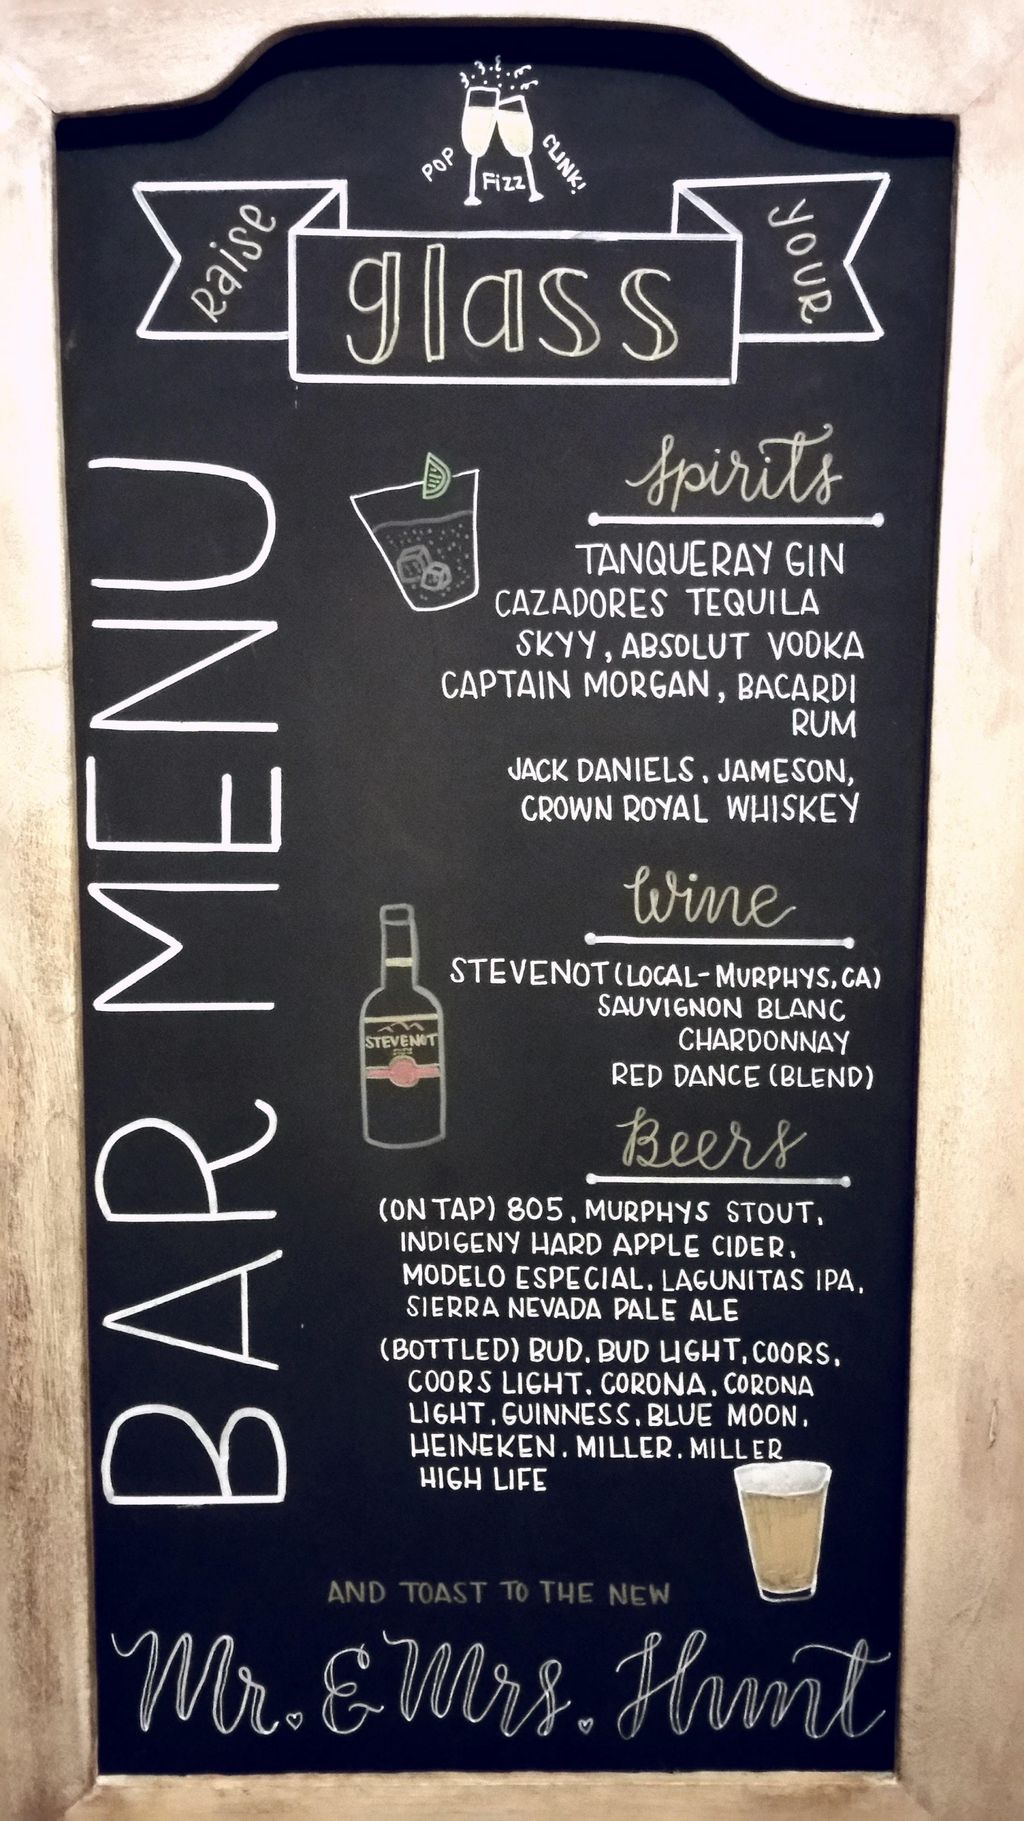 POP Fizz CLINK!
Raise glass YOUR
BAR MENU
Spirits
TANQUERAY GIN
CAZADORES TEQUILA
SKYY, ABSOLUT VODKA
CAPTAIN MORGAN, BACARDI
RUM
JACK DANIELS, JAMESON,
CROWN ROYAL WHISKEY
Wine
STEVENOT (LOCAL-MURPHYS, CA)
SAUVIGNON BLANC
CHARDONNAY
RED DANCE (BLEND)
STEVENOT
Beers
(ON TAP) 805, MURPHYS STOUT,
INDIGENY HARD APPLE CIDER,
MODELO ESPECIAL, LAGUNITAS IPA,
SIERRA NEVADA PALE ALE
(BOTTLED) BUD, BUD LIGHT, COORS,
COORS LIGHT, CORONA, CORONA
LIGHT, GUINNESS, BLUE MOON,
HEINEKEN, MILLER, MILLER
HIGH LIFE
AND TOAST TO THE NEW
Mr. & Mrs. Hunt